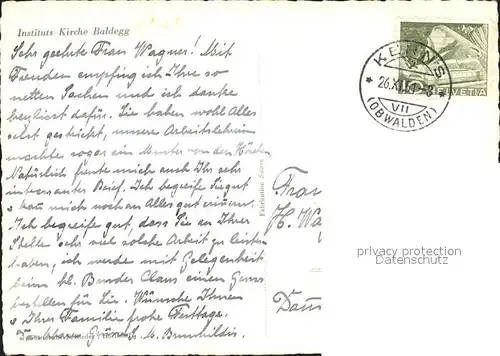 Instituts Kirche Baldegg
Sehr geehrte Frau Wagner! Mit
Freuden empfing ich Ihre so
netten Sachen und ich danke
herzlich dafür. Sie haben wohl Alles
selbst gestrickt, unsere Arbeitslehrerin
machte sogar ein Muster von den Höschen.
Natürlich freute mich auch Ihr sehr
interessanter Brief. Ich begreife Sie gut
u. kann mich noch an Alles gut erinnern.
Ich begreife gut, dass Sie an Ihrer
Stelle sehr viel solche Arbeit zu leisten
haben, ich werde mit Gelegenheit
beim hl. Bruder Claus einen Gruss
bestellen für Sie. Wünsche Ihnen
u. Ihrer Familie frohe Festtage.
Dankbare Grüsse Sr. M. Brunhildis.
KERNS
26.XII.51-8
VII
(OBWALDEN)
HELVETIA
Frau
H. Wa
privacy protection
Datenschutz